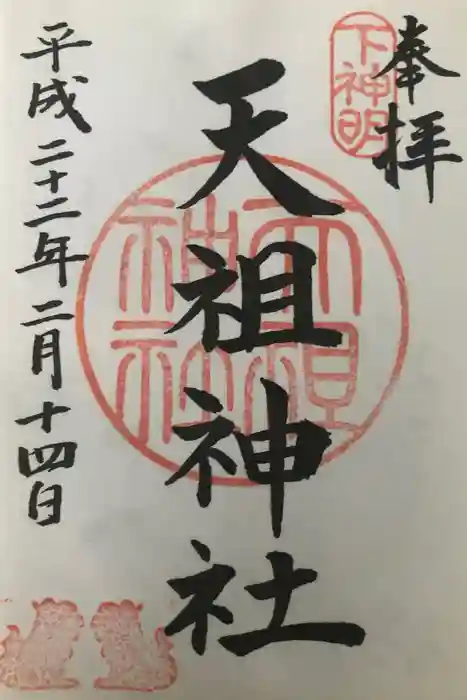 奉拝
下神明
天祖神社
天祖神社
平成二十二年二月十四日